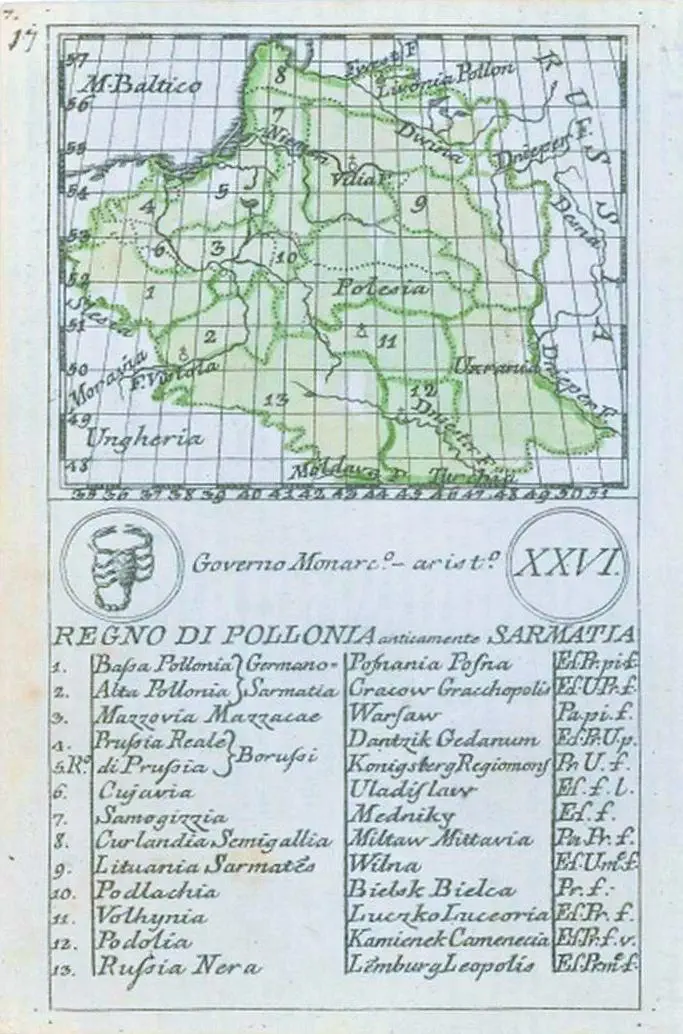 17
57
8
M. Baltico
Livonia Pollon
RUSSIA
56
7
55
Niemen
Dwina
Dnieper
4
5
Vilia F.
9
54
Desna
53
6
3
10
52
1
Polesia
Slesia
51
2
11
50
Moravia
F. Vistola
Ukrania
Dnieper F.
12
49
13
Dniester F.
Ungheria
48
Moldava F.
Turchaji
35 36 37 38 39 40 41 42 43 44 45 46 47 48 49 50 51
Governo Monarc.º - arist.º
XXVI.
REGNO DI POLLONIA anticamente SARMATIA
1. Baſsa Pollonia Germano= Poſnania Poſna Eſ.Pr.pi.f.
2. Alta Pollonia Sarmatia Cracow Gracchopolis Eſ.U.Pr.f.
3. Mazzovia Mazzacae Warſaw Pa.pi.f.
4. Pruſsia Reale Dantzik Gedanum Eſ.Pr.U.p.
5. R.º di Pruſsia Boruſsi Konigsberg Regiomons Pr. U. f.
6. Cujavia Uladiſlaw Eſ. f. l.
7. Samogizzia Medniky Eſ. f.
8. Curlandia Semigallia Mittaw Mittavia Pa.Pr. f.
9. Lituania Sarmates Wilna Eſ.U.m.e f.
10. Podlachia Bielsk Bielca Pr. f.
11. Volhynia Luczko Luceoria Eſ.Pr. f.
12. Podolia Kamienek Camenecia Eſ.Pr.f.v.
13. Ruſsia Nera Lemburg Leopolis Eſ.Pr.m.e f.